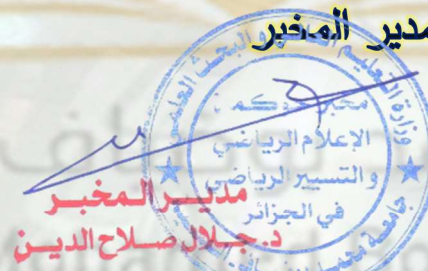 مدير المخبر
وزارة التعليم العالي والبحث العلمي
مخبر
الإعلام الرياضي
والتسيير الرياضي
في الجزائر
مديـر المخبـر
د.جـلال صـلاح الديـن